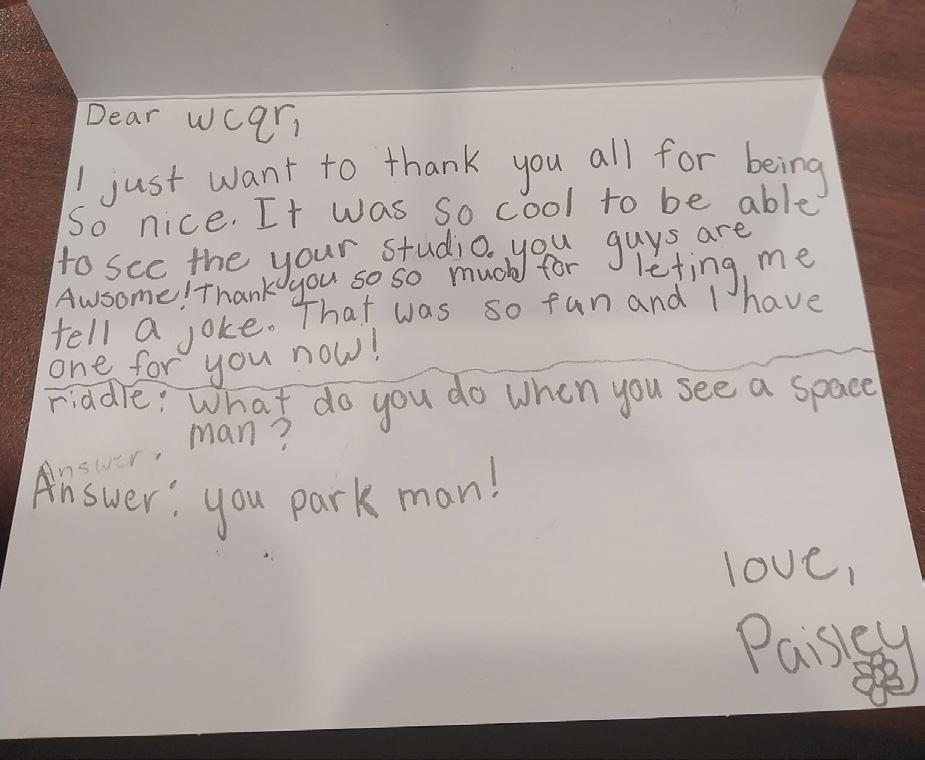 Dear wcqr,
I just want to thank you all for being
So nice. It was so cool to be able
to see the your studio. you guys are
Awsome! Thank you so so much for leting me
tell a joke. That was so fun and I have
one for you now!
riddle: What do you do when you see a space
man?
Answer.
Answer: you park man!
love,
Paisley